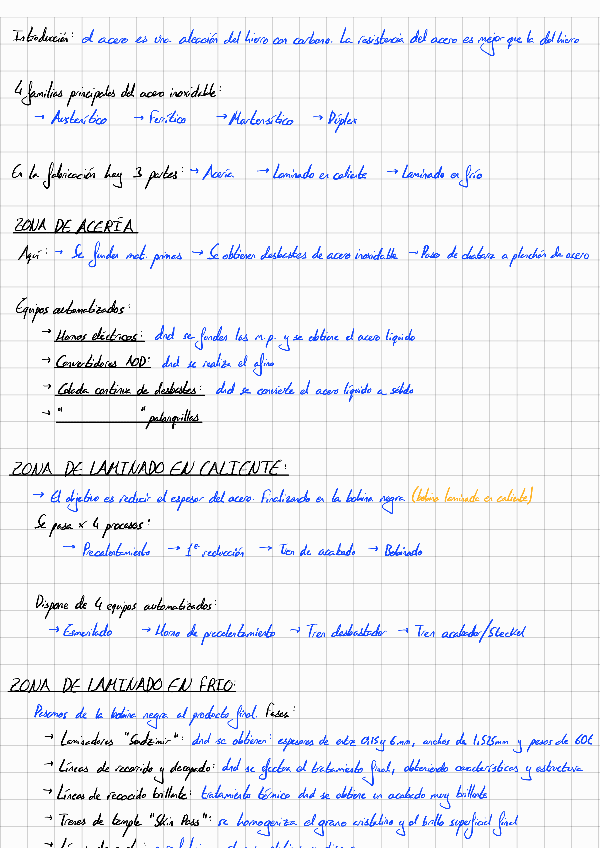 Introducción: el acero es una aleación del hierro con carbono. La resistencia del acero es mejor que la del hierro
4 familias principales del acero inoxidable:
→ Austenítico → Ferrítico → Martensítico → Dúplex
En la fabricación hay 3 partes: → Acería → Laminado en caliente → Laminado en frío
ZONA DE ACERÍA
Aquí: → Se funden mat. primas → Se obtienen desbastes de acero inoxidable → Paso de chatarra a planchón de acero
Equipos automatizados:
→ Hornos eléctricos: dnd se funden las m.p. y se obtiene el acero líquido
→ Convertidores AOD: dnd se realiza el afino
→ Colada continua de desbastes: dnd se convierte el acero líquido a sólido
→ " " palanquillas
ZONA DE LAMINADO EN CALIENTE:
→ El objetivo es reducir el espesor del acero. Finalizando en la bobina negra (bobina laminada en caliente)
Se pasa x 4 procesos:
→ Precalentamiento → 1ª reducción → Tren de acabado → Bobinado
Dispone de 4 equipos automatizados:
→ Esmerilado → Horno de precalentamiento → Tren desbastador → Tren acabador/Steckel
ZONA DE LAMINADO EN FRIO:
Pasamos de la bobina negra al producto final. Fases:
→ Laminadores "Sendzimir": dnd se obtienen: espesores de entre 0,15 y 6mm, anchos de 1.525mm y pesos de 60t
→ Líneas de recocido y decapado: dnd se efectúa el tratamiento final, obteniendo características y estructura
→ Líneas de recocido brillante: tratamiento térmico dnd se obtiene un acabado muy brillante
→ Trenes de temple "Skin Pass": se homogeniza el grano cristalino y el brillo superficial final